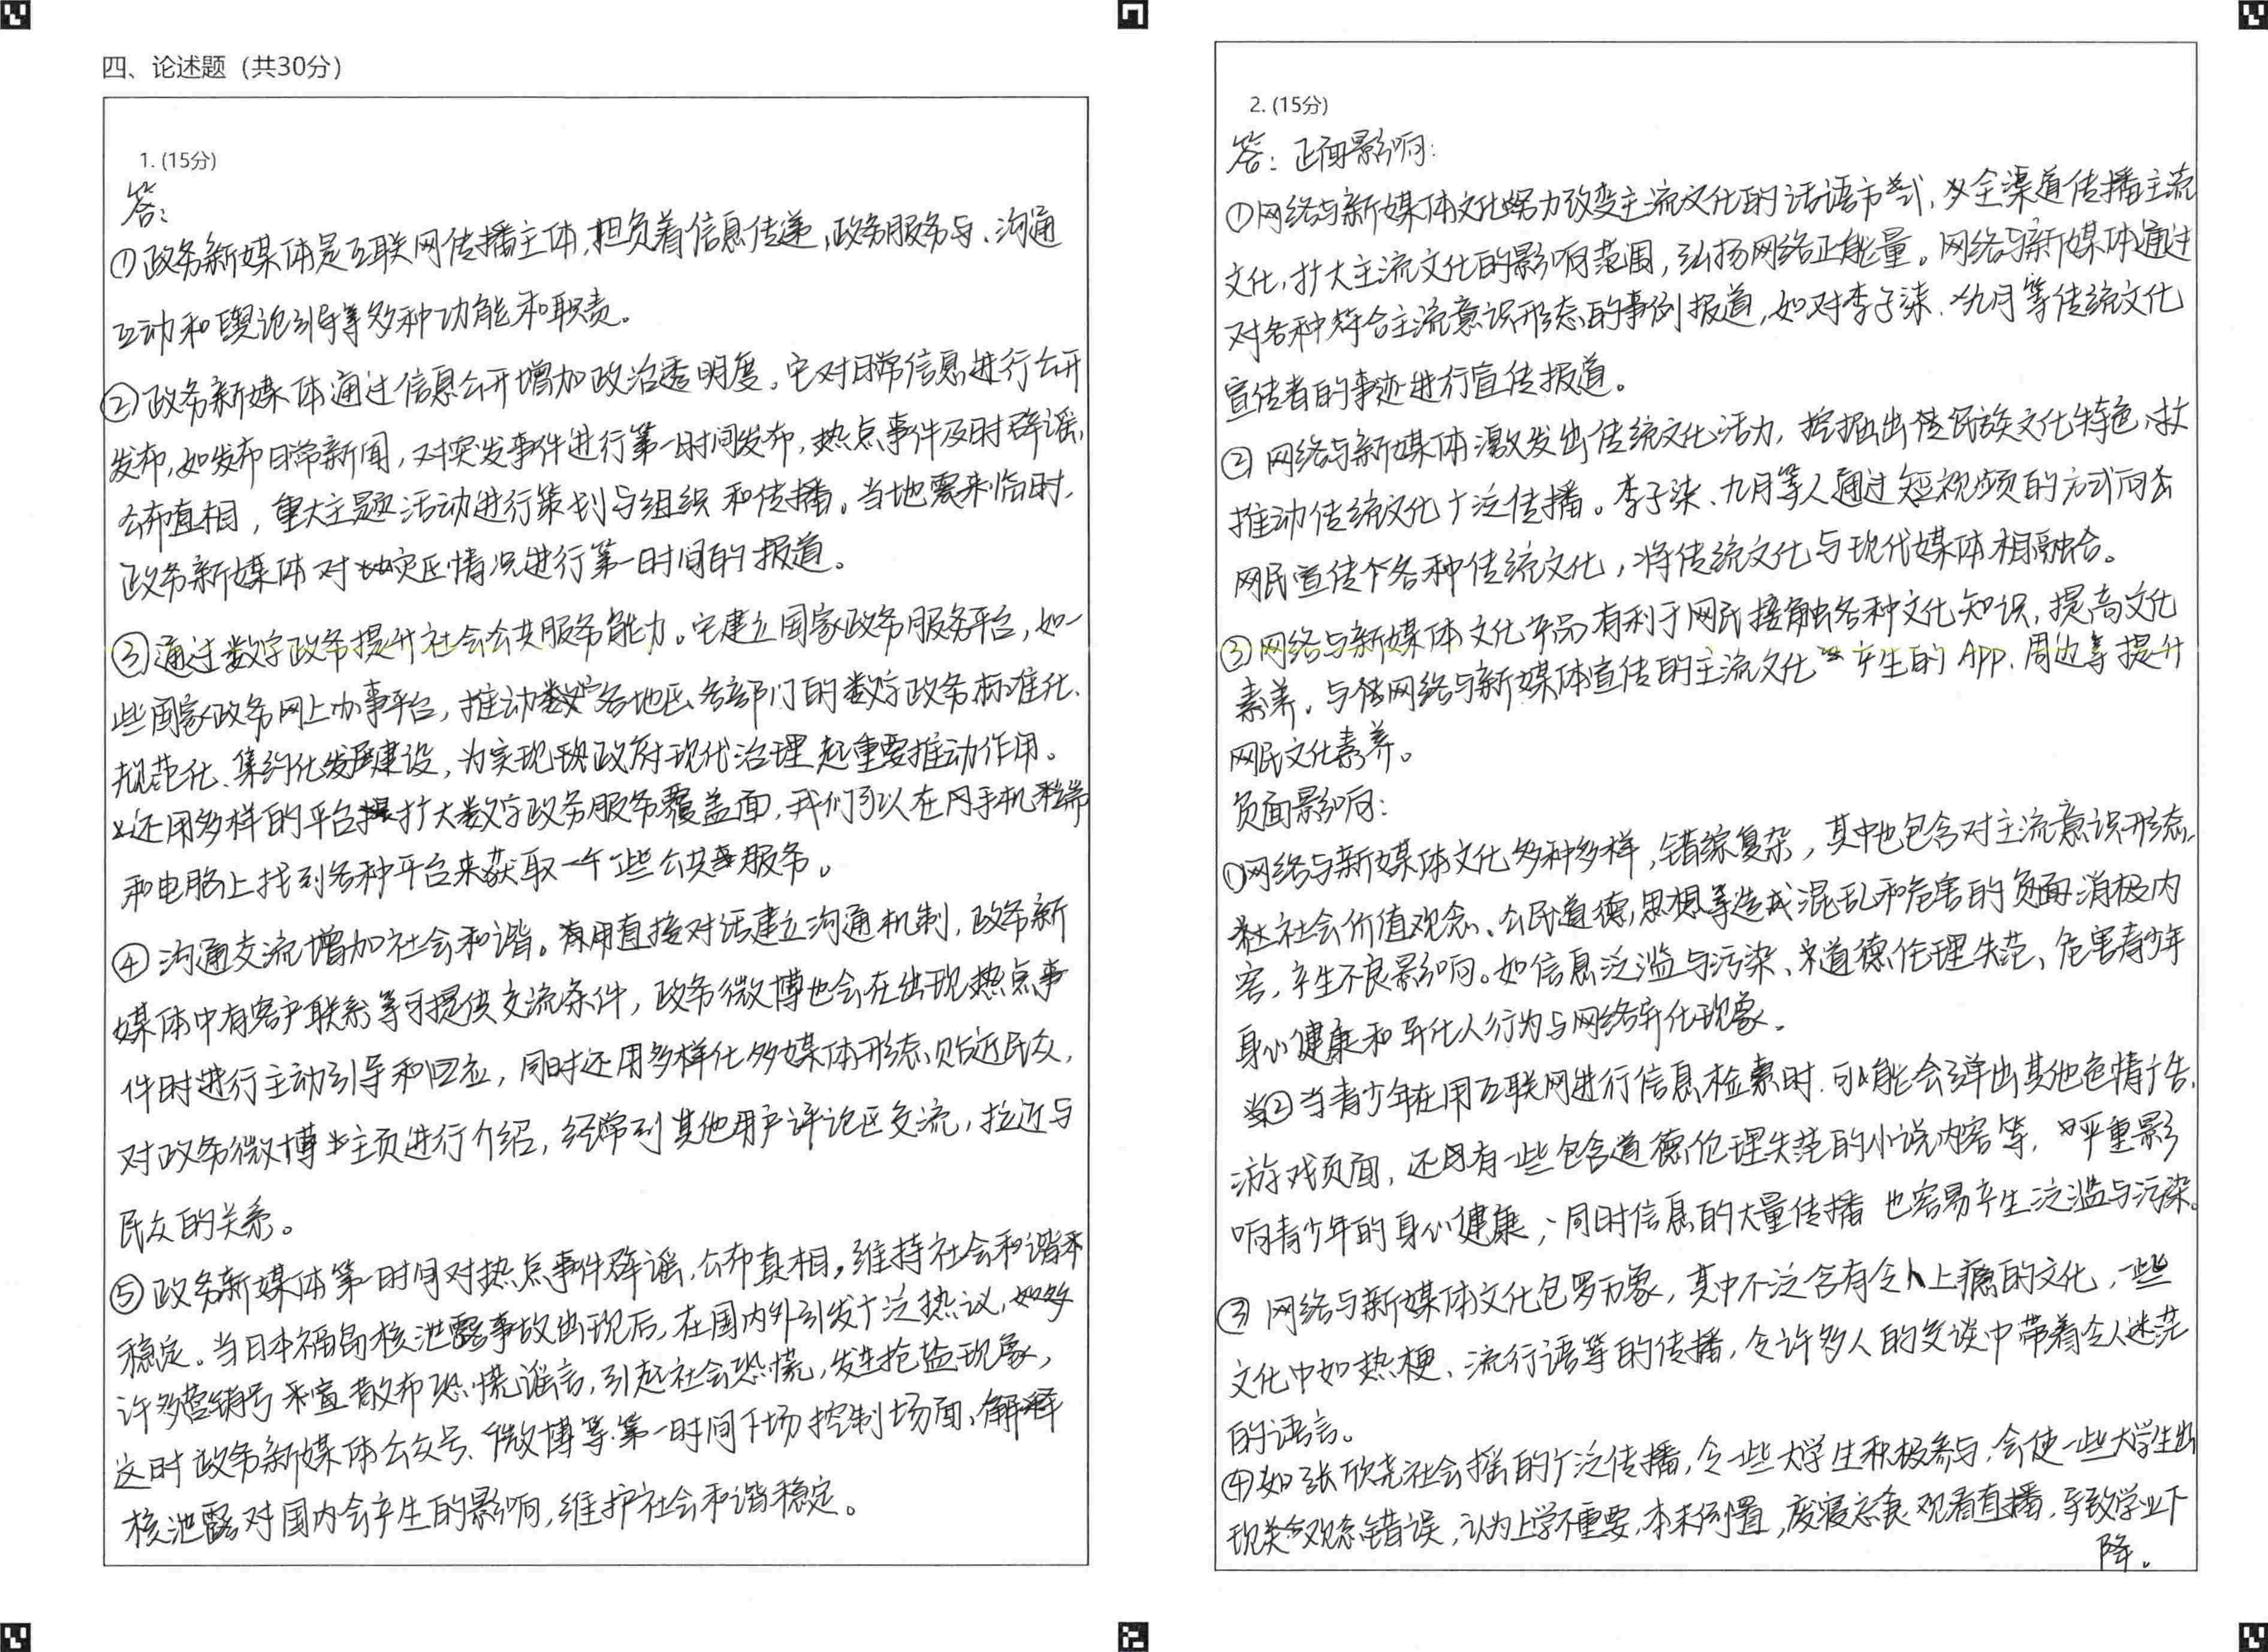 四、论述题（共30分）
1. (15分)
答：
①政务新媒体是互联网传播主体,担负着信息传递,政务服务与、沟通
互动和舆论引导等多种功能和职责。
②政务新媒体通过信息公开增加政治透明度。它对日常信息进行公开
发布,如发布日常新闻,对突发事件进行第一时间发布,热点事件及时辟谣、
公布真相，重大主题活动进行策划与组织和传播。当地震来临时,
政务新媒体对灾区情况进行第一时间的报道。
③通过数字政务提升社会公共服务能力。它建立国家政务服务平台，如一
些国家政务网上办事平台，推动各地区、各部门的数字政务标准化、
规范化、集约化发展建设，为实现政府现代治理起重要推动作用。
还用多样的平台扩大数字政务服务覆盖面,我们可以在手机端
和电脑上找到各种平台来获取一些公共服务。
④沟通交流增加社会和谐。有用直接对话建立沟通机制,政务新
媒体中有客户联系等可提供交流条件，政务微博也会在出现热点事
件时进行主动引导和回应，同时还用多样化多媒体形态贴近民众,
对政务微博主页进行介绍，经常到其他用户评论区交流，拉近与
民众的关系。
⑤政务新媒体第一时间对热点事件辟谣,公布真相,维持社会和谐和
稳定。当日本福岛核泄露事故出现后,在国内外引发广泛热议,
许多营销号散布恐慌谣言,引起社会恐慌,发生抢盐现象,
这时政务新媒体公众号、微博等第一时间下场控制场面、解释
核泄露对国内会产生的影响,维护社会和谐稳定。
2. (15分)
答：正面影响：
①网络与新媒体文化努力改变主流文化的话语方式,全渠道传播主流
文化,扩大主流文化的影响范围,弘扬网络正能量。网络与新媒体通过
对各种符合主流意识形态的事例报道,如对李子柒、九月等传统文化
宣传者的事迹进行宣传报道。
②网络与新媒体激发出传统文化活力，挖掘出民族文化特色,
推动传统文化广泛传播。李子柒、九月等人通过短视频的方式向
网民宣传各种传统文化,将传统文化与现代媒体相融合。
③网络与新媒体文化产品有利于网民接触各种文化知识,提高文化
素养。与网络与新媒体宣传的主流文化产生的APP、周边等提升
网民文化素养。
负面影响：
①网络与新媒体文化多种多样,错综复杂,其中也包含对主流意识形态、
社会价值观念、公民道德,思想等造成混乱和危害的负面消极内
容,产生不良影响。如信息泛滥与污染、道德伦理失范、危害青少年
身心健康和异化人行为与网络异化现象。
②当青少年在用互联网进行信息检索时.可能会弹出其他色情广告、
游戏页面,还有一些包含道德伦理失范的小说内容等,严重影
响青少年的身心健康；同时信息的大量传播也容易产生泛滥与污染。
③网络与新媒体文化包罗万象,其中不泛含有令人上瘾的文化,一些
文化中如热梗、流行语等的传播,令许多人的交谈中带着令人迷茫
的语言。
④如张欣尧社会摇的广泛传播,令一些大学生积极参与,会使一些大学生出
现观念错误,认为上学不重要,本末倒置,废寝忘食观看直播,导致学业下
降。